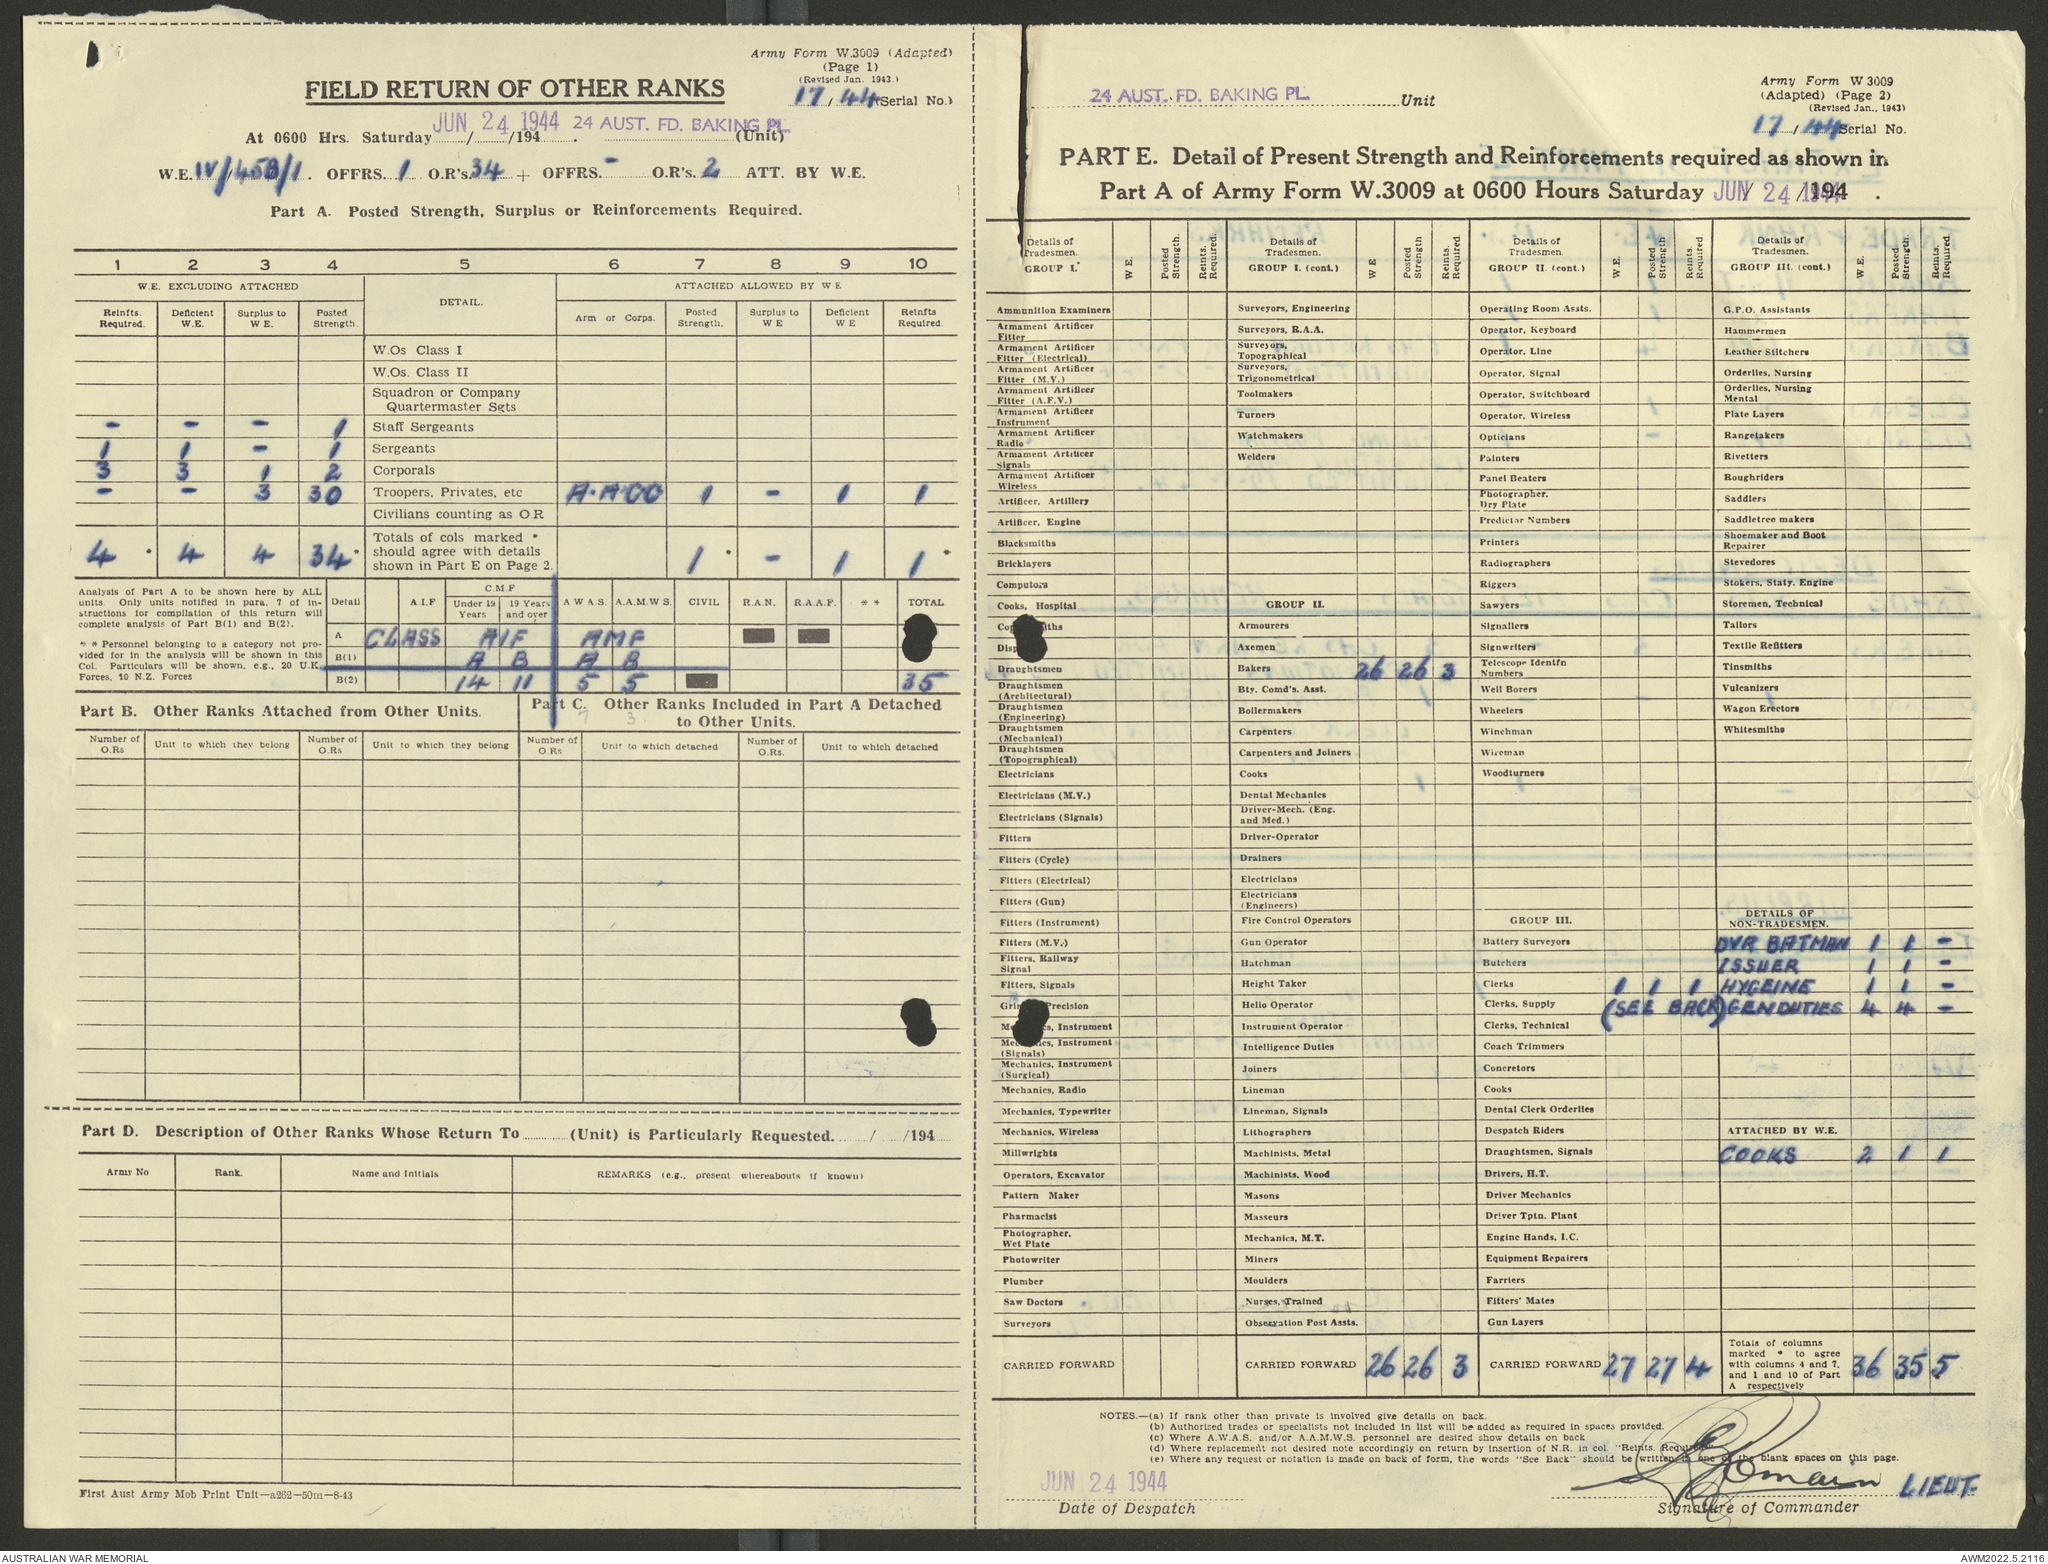 Army Form W.3009 (Adapted)
(Page 1)
(Revised Jan. 1943.)
FIELD RETURN OF OTHER RANKS
17/44 (Serial No.)
At 0600 Hrs. Saturday JUN 24 1944 /194 . 24 AUST. FD. BAKING PL. (Unit)
W.E. IV/458/1. OFFRS. 1 O.R's. 34 + OFFRS. - O.R's. 2 ATT. BY W.E.
Part A. Posted Strength, Surplus or Reinforcements Required.
1 2 3 4 5 6 7 8 9 10
W.E. EXCLUDING ATTACHED DETAIL. ATTACHED ALLOWED BY W E
Reinfts. Required. Deficient W.E. Surplus to W E. Posted Strength. Arm or Corps. Posted Strength. Surplus to W E Deficient W E Reinfts Required.
W.Os Class I
W.Os. Class II
Squadron or Company Quartermaster Sgts
- - - 1 Staff Sergeants
1 1 - 1 Sergeants
3 3 1 2 Corporals
- - 3 30 Troopers, Privates, etc A.A.CC 1 - 1 1
Civilians counting as O R
4 * 4 4 34 * Totals of cols marked * should agree with details shown in Part E on Page 2. 1 * - 1 1 *
Analysis of Part A to be shown here by ALL units. Only units notified in para. 7 of instructions for compilation of this return will complete analysis of Part B(1) and B(2).
* * Personnel belonging to a category not provided for in the analysis will be shown in this Col. Particulars will be shown, e.g., 20 U.K. Forces, 10 N.Z. Forces
Detail A I.F C.M.F Under 19 Years 19 Years and over A W A S. A.A.M.W S. CIVIL R.A.N. R.A.A.F. * * TOTAL
A CLASS AIF AMF
B(1) A B A B
B(2) 14 11 5 5 35
7 3
Part B. Other Ranks Attached from Other Units.
Part C. Other Ranks Included in Part A Detached to Other Units.
Number of O.Rs Unit to which they belong Number of O.Rs Unit to which they belong Number of O.Rs Unit to which detached Number of O.Rs. Unit to which detached
Part D. Description of Other Ranks Whose Return To (Unit) is Particularly Requested. / /194
Army No Rank. Name and Initials REMARKS (e.g., present whereabouts if known)
First Aust Army Mob Print Unit—a262—50m—8-43
24 AUST. FD. BAKING PL. Unit
Army Form W 3009
(Adapted) (Page 2)
(Revised Jan., 1943)
17/44 Serial No.
PART E. Detail of Present Strength and Reinforcements required as shown in
Part A of Army Form W.3009 at 0600 Hours Saturday JUN 24 1944 /194 .
Details of Tradesmen. GROUP I. W E. Posted Strength. Reints. Required.
Ammunition Examiners
Armament Artificer Fitter
Armament Artificer Fitter (Electrical)
Armament Artificer Fitter (M.V.)
Armament Artificer Fitter (A.F.V.)
Armament Artificer Instrument
Armament Artificer Radio
Armament Artificer Signals
Armament Artificer Wireless
Artificer, Artillery
Artificer, Engine
Blacksmiths
Bricklayers
Computors
Cooks, Hospital
Draughtsmen
Draughtsmen (Architectural)
Draughtsmen (Engineering)
Draughtsmen (Mechanical)
Draughtsmen (Topographical)
Electricians
Electricians (M.V.)
Electricians (Signals)
Fitters
Fitters (Cycle)
Fitters (Electrical)
Fitters (Gun)
Fitters (Instrument)
Fitters (M.V.)
Fitters, Railway Signal
Fitters, Signals
Precision
Instrument
Mechanics, Instrument (Signals)
Mechanics, Instrument (Surgical)
Mechanics, Radio
Mechanics, Typewriter
Mechanics, Wireless
Millwrights
Operators, Excavator
Pattern Maker
Pharmacist
Photographer, Wet Plate
Photowriter
Plumber
Saw Doctors
Surveyors
CARRIED FORWARD
Details of Tradesmen. GROUP I. (cont.) W E Posted Strength Reints. Required
Surveyors, Engineering
Surveyors, R.A.A.
Surveyors, Topographical
Surveyors, Trigonometrical
Toolmakers
Turners
Watchmakers
Welders
GROUP II.
Armourers
Axemen
Bakers 26 26 3
Bty. Comd's. Asst.
Boilermakers
Carpenters
Carpenters and Joiners
Cooks
Dental Mechanics
Driver-Mech. (Eng. and Med.)
Driver-Operator
Drainers
Electricians
Electricians (Engineers)
Fire Control Operators
Gun Operator
Hatchman
Height Taker
Helio Operator
Instrument Operator
Intelligence Duties
Joiners
Lineman
Lineman, Signals
Lithographers
Machinists, Metal
Machinists, Wood
Masons
Masseurs
Mechanics, M.T.
Miners
Moulders
Nurses, Trained
Observation Post Assts.
CARRIED FORWARD 26 26 3
Details of Tradesmen. GROUP II. (cont.) W.E. Posted Strength Reints. Required
Operating Room Assts.
Operator, Keyboard
Operator, Line
Operator, Signal
Operator, Switchboard
Operator, Wireless
Opticians
Painters
Panel Beaters
Photographer, Dry Plate
Predictor Numbers
Printers
Radiographers
Riggers
Sawyers
Signallers
Signwriters
Telescope Identfn Numbers
Well Borers
Wheelers
Winchman
Wireman
Woodturners
GROUP III.
Battery Surveyors
Butchers
Clerks 1 1 1
Clerks, Supply (SEE BACK)
Clerks, Technical
Coach Trimmers
Concretors
Cooks
Dental Clerk Orderlies
Despatch Riders
Draughtsmen, Signals
Drivers, H.T.
Driver Mechanics
Driver Tptn. Plant
Engine Hands, I.C.
Equipment Repairers
Farriers
Fitters' Mates
Gun Layers
CARRIED FORWARD 27 27 4
Details of Tradesmen. GROUP III. (cont.) W.E. Posted Strength. Reints. Required.
G.P.O. Assistants
Hammermen
Leather Stitchers
Orderlies, Nursing
Orderlies, Nursing Mental
Plate Layers
Rangetakers
Rivetters
Roughriders
Saddlers
Saddletree makers
Shoemaker and Boot Repairer
Stevedores
Stokers, Staty. Engine
Storemen, Technical
Tailors
Textile Refitters
Tinsmiths
Vulcanizers
Wagon Erectors
Whitesmiths
DETAILS OF NON-TRADESMEN.
DVR BATMAN 1 1 -
ISSUER 1 1 -
HYGEINE 1 1 -
GENDUTIES 4 4 -
ATTACHED BY W.E.
COOKS 2 1 1
Totals of columns marked * to agree with columns 4 and 7, and 1 and 10 of Part A respectively 36 35 5
NOTES.—(a) If rank other than private is involved give details on back.
(b) Authorised trades or specialists not included in list will be added as required in spaces provided.
(c) Where A.W.A.S. and/or A.A.M.W.S. personnel are desired show details on back
(d) Where replacement not desired note accordingly on return by insertion of N.R. in col. "Reints. Required"
(e) Where any request or notation is made on back of form, the words "See Back" should be written in one of the blank spaces on this page.
JUN 24 1944
Date of Despatch
LIEUT.
Signature of Commander
AUSTRALIAN WAR MEMORIAL
AWM2022.5.2116